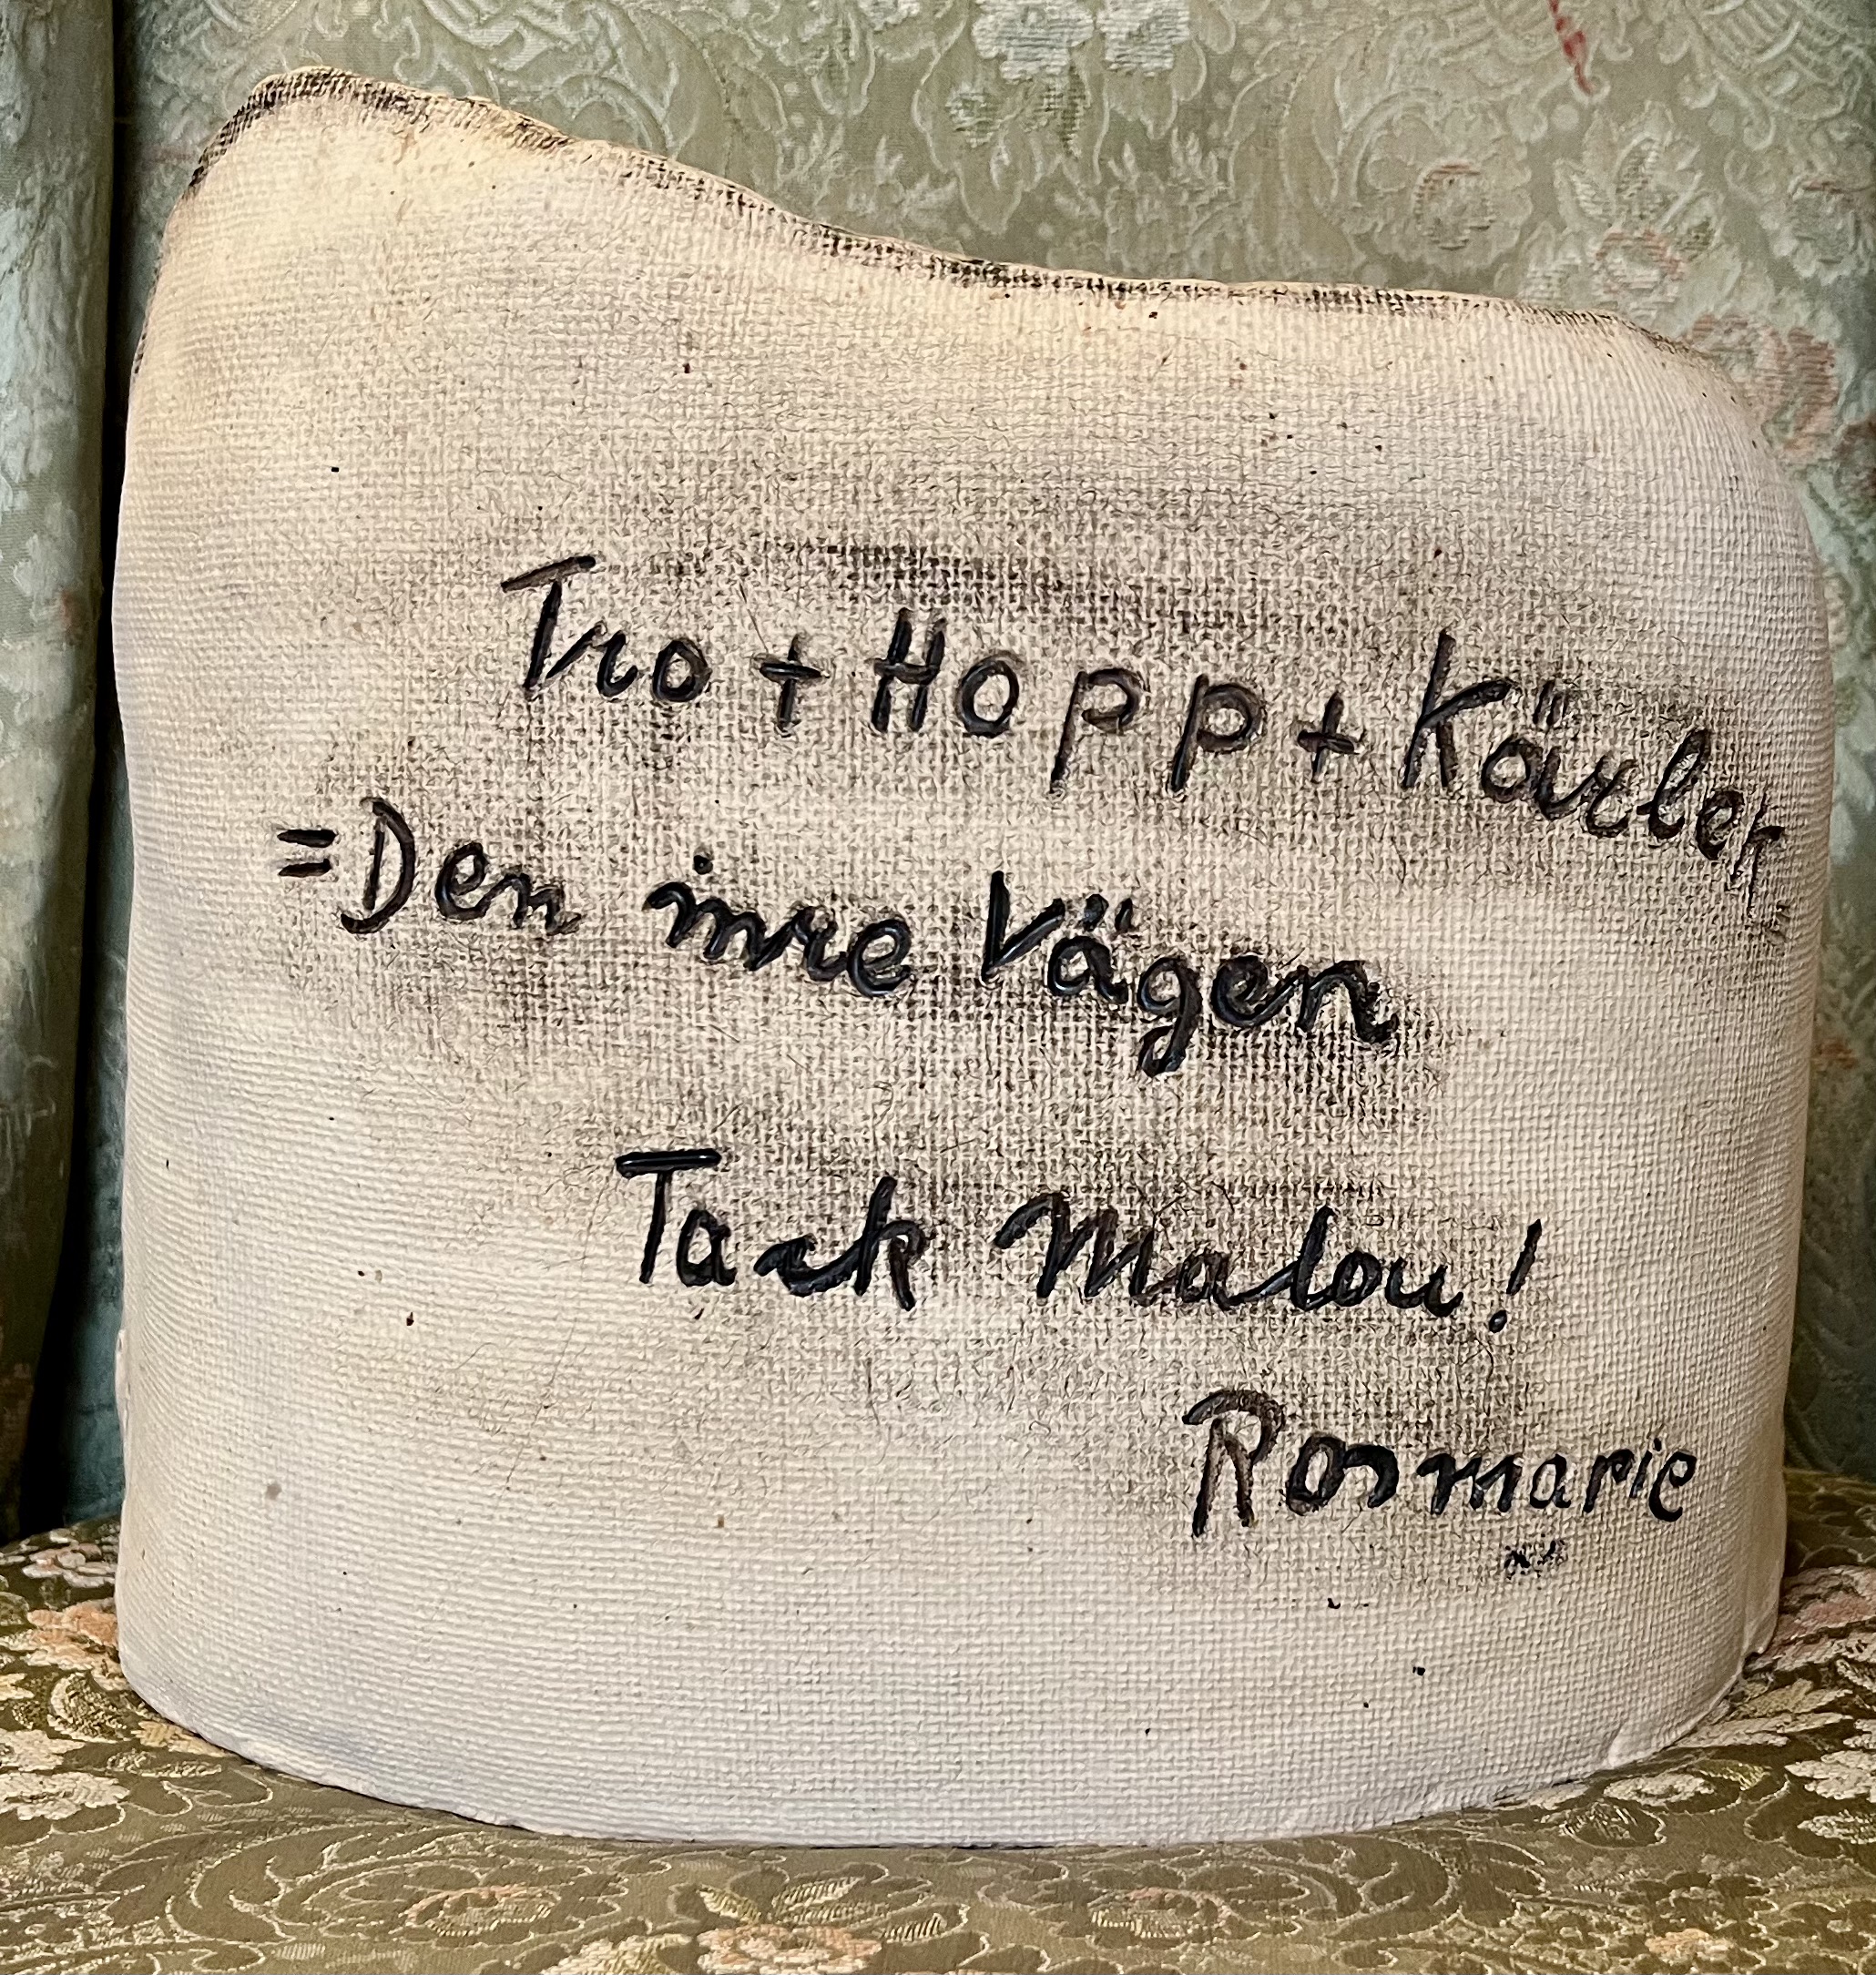 Tro + Hopp + Kärlek
= Den inre Vägen
Tack Malou!
Rosmarie